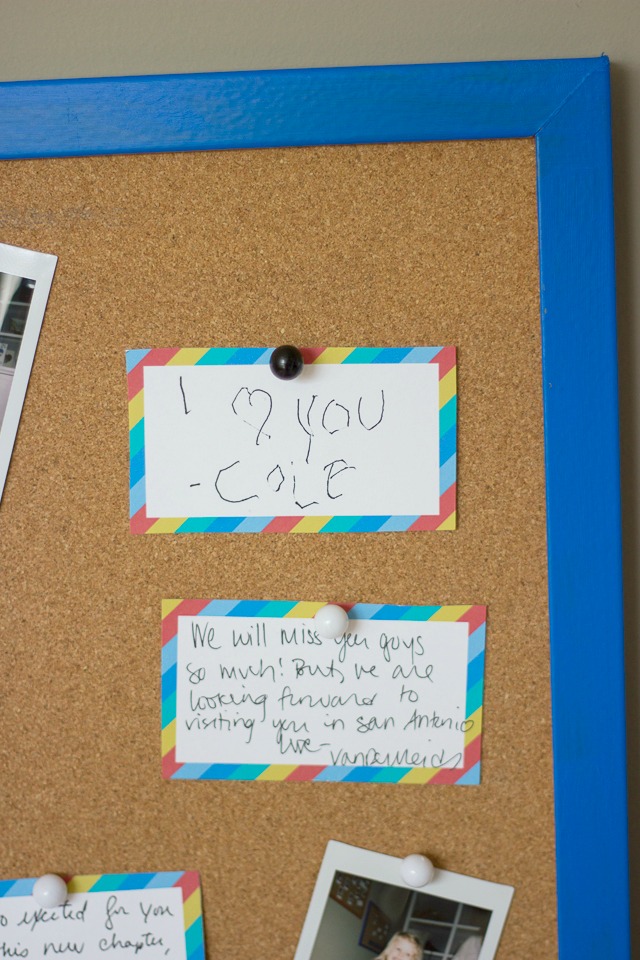 I ♡ YOU
-COLE
We will miss you guys
so much! But, we are
looking forward to
visiting you in san Antonio
love-
o excited for you
his new chapter,